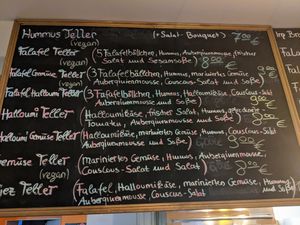 Hummus Teller (+ Salat-Bouquet) 7,00 €
(vegan)
Falafel Teller (5 Falafelbällchen, Hummus, Auberginenmousse, frischer
(vegan) Salat und Sesamsoße) 8,00 €
Falafel Gemüse Teller (3 Falafelbällchen, Hummus, mariniertes Gemüse
(vegan) Auberginenmousse, Couscous-Salat und Soße) €
Falafel Halloumi Teller (3 Falafelbällchen, Hummus, Halloumikäse, Couscous-Salat,
Auberginenmousse und Soße) 9,00 €
Halloumi Teller (Halloumikäse, frischer Salat, Hummus,
Tomaten, Auberginenmousse und Soße) €
Halloumi Gemüse Teller (Halloumikäse, mariniertes Gemüse, Hummus, Couscous-Salat
Auberginenmousse und Soße) 9,00 €
Gemüse Teller (Mariniertes Gemüse, Hummus, Auberginenmousse,
(vegan) Couscous-Salat und Salat) €
Teller (Falafel, Halloumikäse, mariniertes Gemüse, Hummus
Auberginenmousse, Couscous-Salat und Soße) €